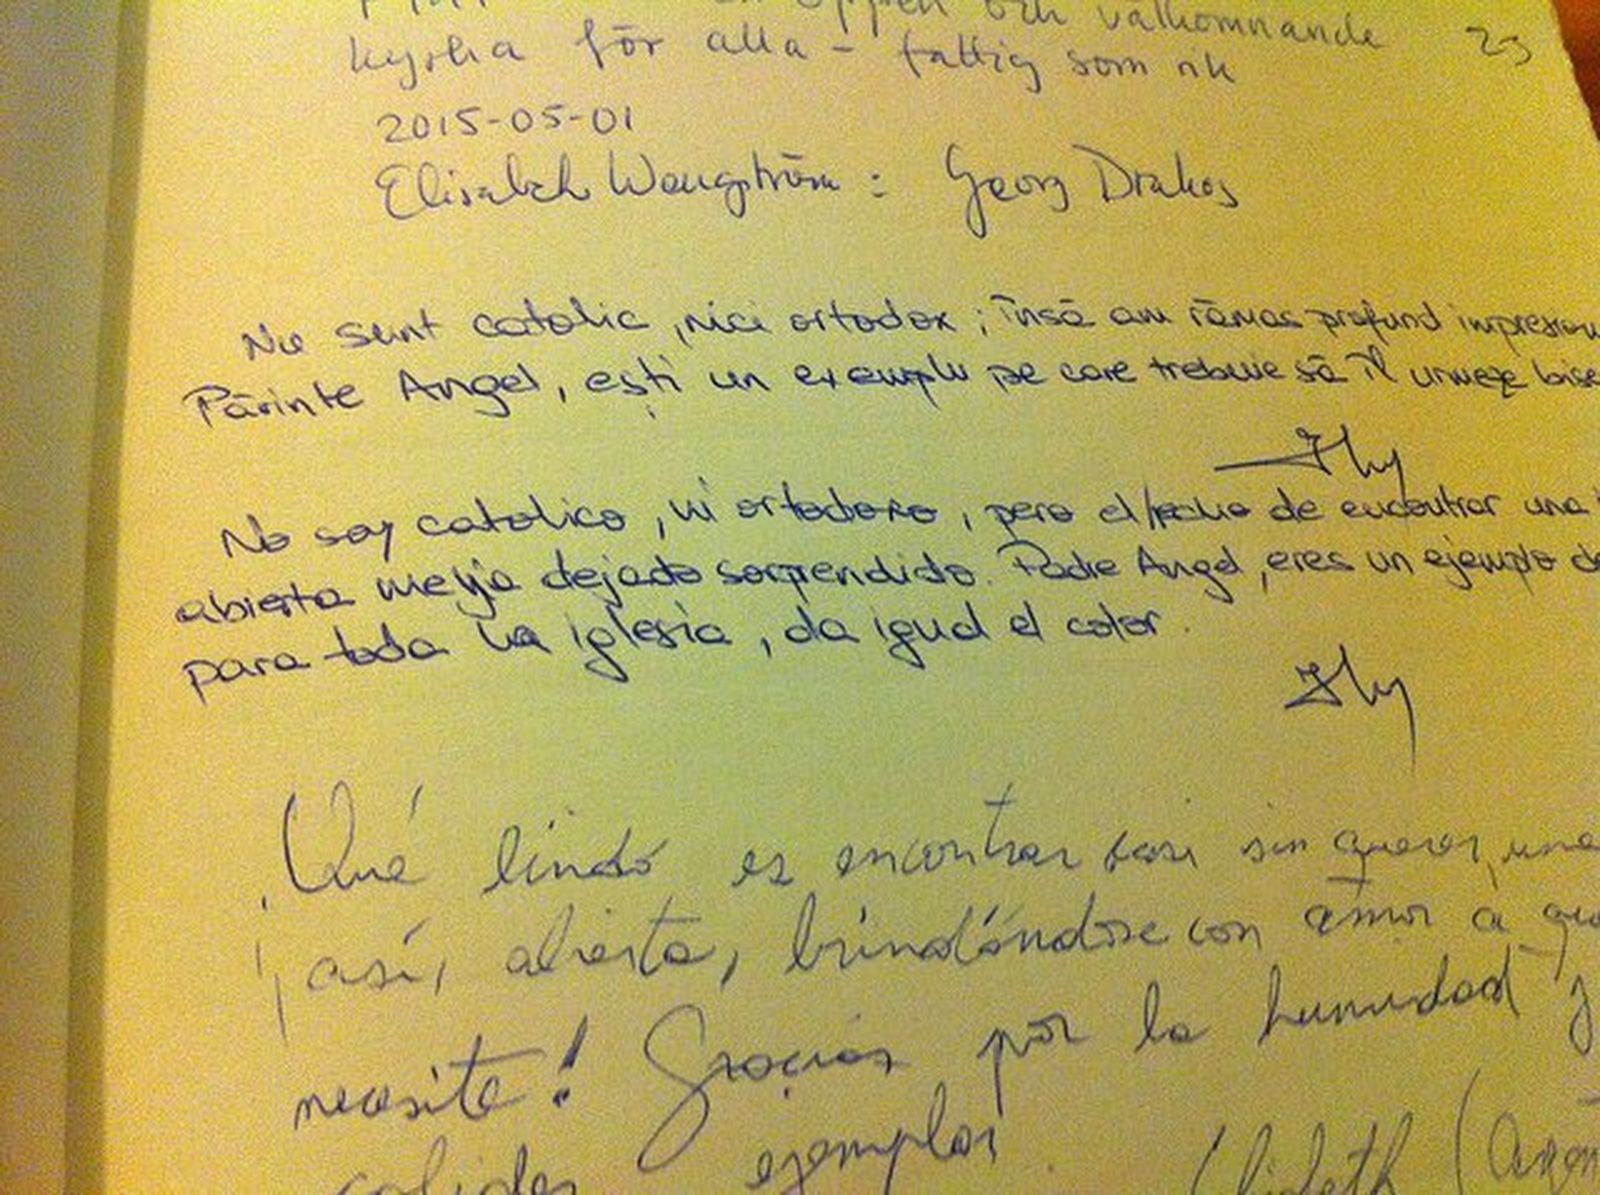 öppen och välkomnande
kyrka för alla - fattig som rik
23
2015-05-01
Elisabeth Wengström : Georg Drakos
Nu sunt catolic, nici ortodox; însă am rămas profund impresion
Părinte Angel, ești un exemplu pe care trebuie să îl urmeze bise
No soy catolico, ni ortodoxo, pero el hecho de encontrar una
abierta me ha dejado sorprendido. Padre Angel, eres un ejemplo de
para toda la iglesia, da igual el color.
¡Qué lindo es encontrar casi sin querer, una
así, abierta, brindándose con amor a
necesite! Gracias por la humildad y
ejemplar